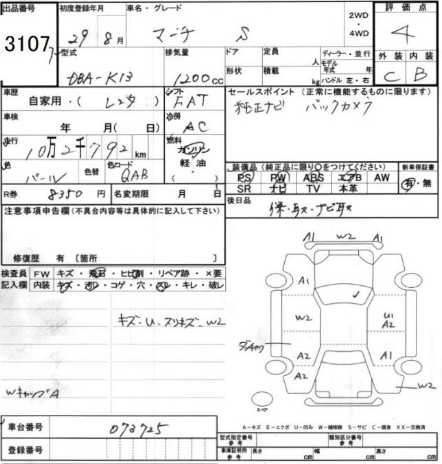 出品番号 初度登録年月 車名・グレード 2WD ・ 4WD 評価点
3107 29年 8月 マーチ S 4
型式 排気量 ドア 定員 ディーラー・並行 外装 内装
DBA-K13 1200cc 形状 積載 kg モデル年式 年 ハンドル 左・右 C B
車歴 自家用・(レンタ) シフト FAT セールスポイント (正常に機能するものに限ります)
車検 年 月( 月) 冷房 AC 純正ナビ バックカメラ
走行 10万2千792km 燃料 ガソリン 軽油 ( )
色 パール 色替 色コード QAB 装備品(純正品に限り○をつけてください) 新車保証書
R券 8350円 名変期限 月 日 PS PW ABS エアB AW 有・無
SR ナビ TV 本革
注意事項申告欄(不具合内容等は具体的に記入して下さい) 後日品
保・取・ナビ取
修復歴 有 [箇所 ]
検査員記入欄 FW キズ・飛石・ヒビ割・リペア跡・×要
内装 キズ・汚レ・コゲ・穴・スレ・キレ・破レ
キズ・U・スリキズ・W2
WキャップA
A1 W2 A1
A1 A1
W2 U1 A2
A2 A2
A1 A2 A1
W2
スペア
A－キズ E－エクボ U－凹み W－補修跡 S－サビ C－腐食 XX－交換済
車台番号 073725
登録番号
型式指定番号 参考 類別区分番号 参考
車庫証明用 参考 長さ cm 幅 cm 高さ cm